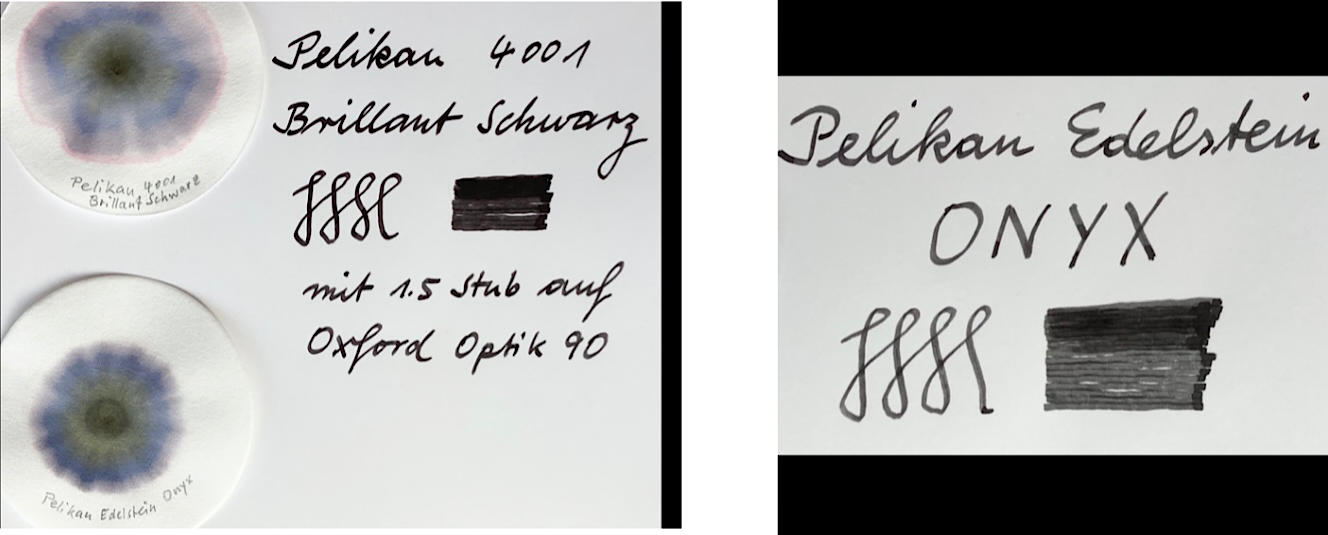 Pelikan 4001
Brillant Schwarz
mit 1.5 Stub auf
Oxford Optik 90
Pelikan 4001
Brillant Schwarz
Pelikan Edelstein Onyx
Pelikan Edelstein
ONYX